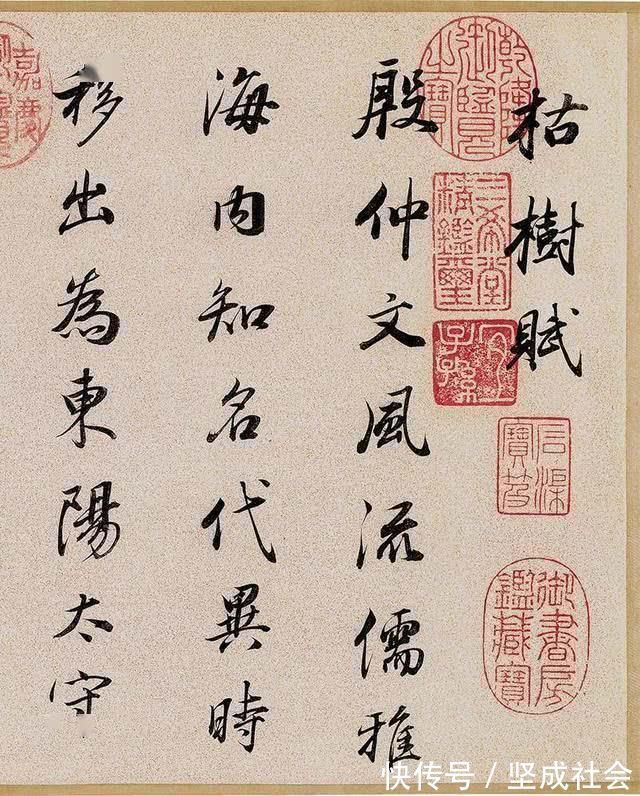 枯樹賦
殷仲文風流儒雅
海内知名代異時
移出為東陽太守
乾隆御覽之寶
三希堂精鑑璽
宜子孫
石渠寶笈
御書房鑑藏寶
嘉慶
快传号 / 坚成社会